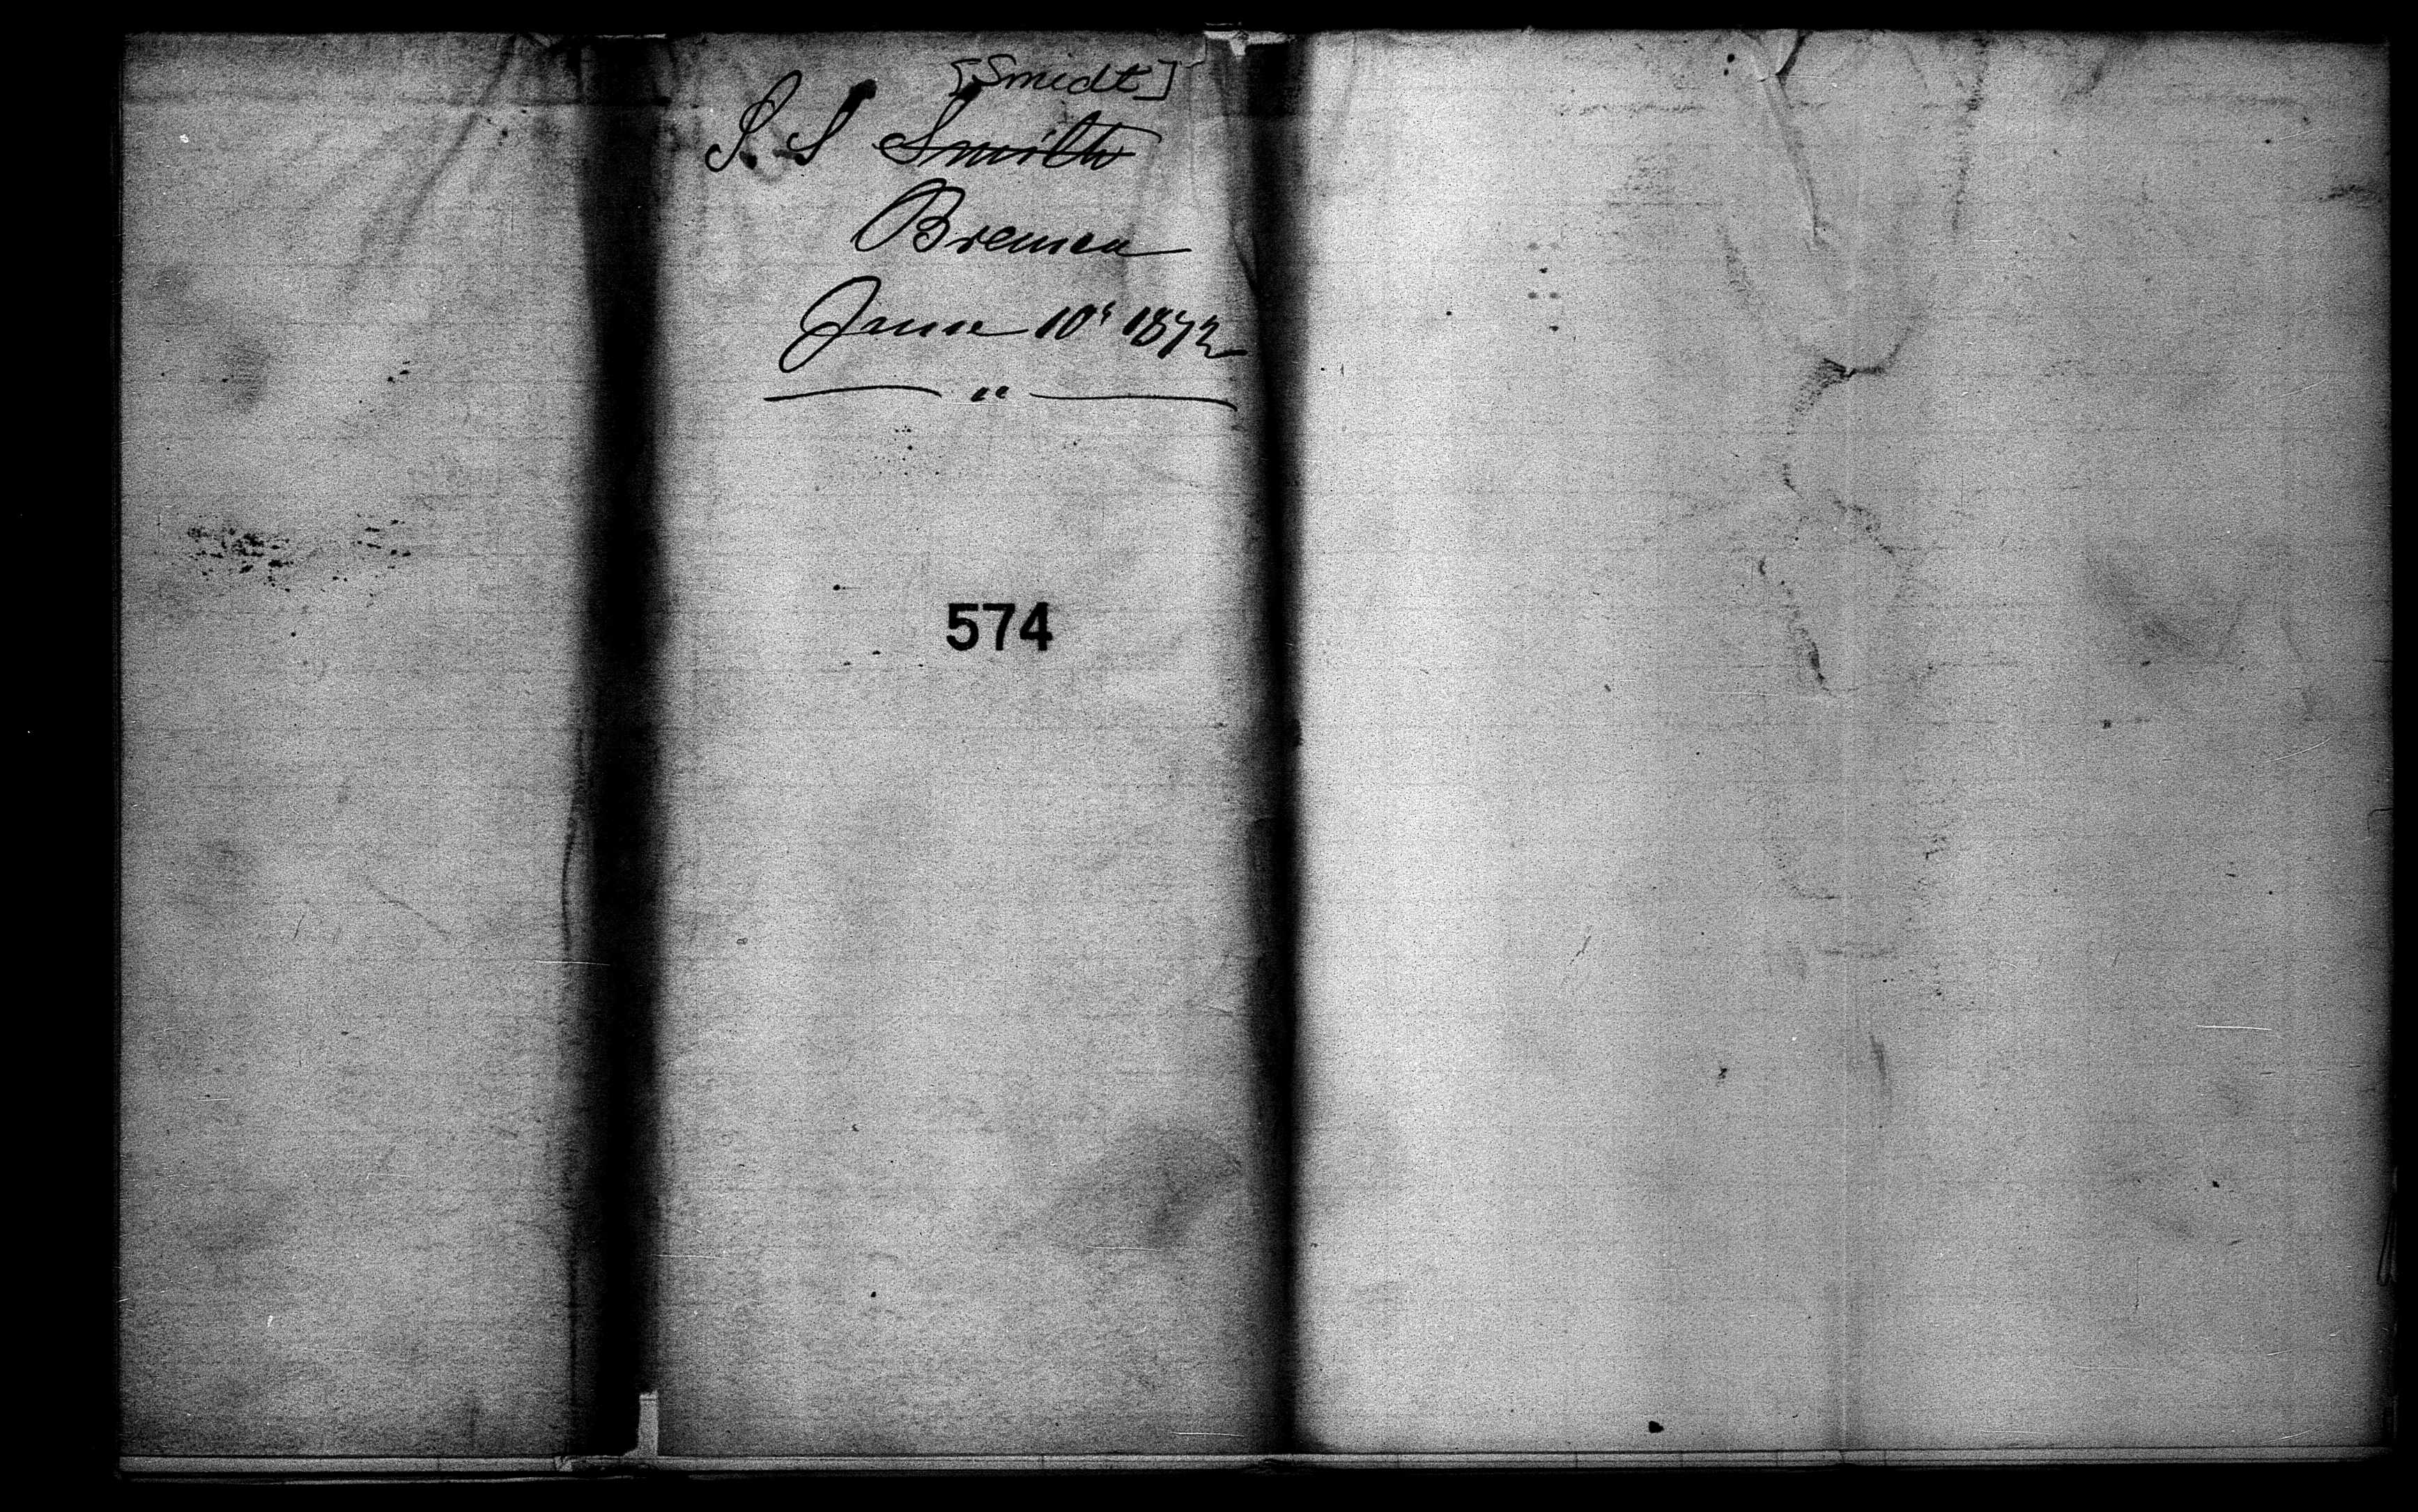 [Smidt]
J. S Smith
Bremen
June 10' 1872
"
574